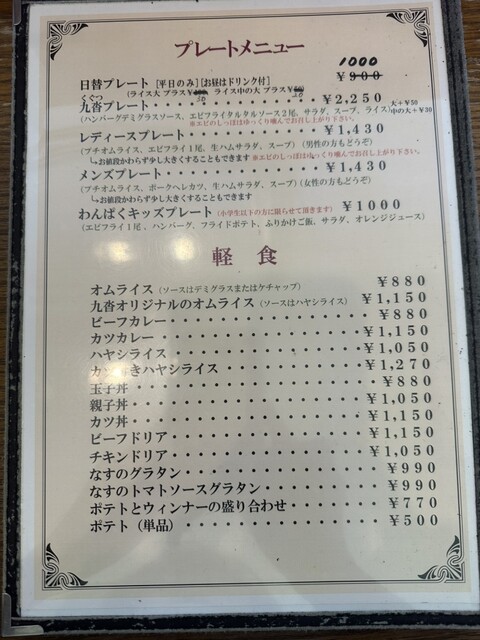 プレートメニュー
1000
日替プレート [平日のみ][お昼はドリンク付] ￥900
(ライス大 プラス￥ 50 ライス中の大 プラス￥ 30
くぐつ
九沓プレート ・・・・・・・・・・・・￥2,250 大+￥50
(ハンバーグデミグラスソース、エビフライタルタルソース2尾、サラダ、スープ、ライス) 中の大+￥30
※エビのしっぽはゆっくり噛んでお召し上がり下さい。
レディースプレート・・・・・・・・・・￥1,430
(プチオムライス、エビフライ1尾、生ハムサラダ、スープ)(男性の方もどうぞ)
↳お値段かわらず少し大きくすることもできます ※エビのしっぽはゆっくり噛んでお召し上がり下さい。
メンズプレート・・・・・・・・・・・・￥1,430
(プチオムライス、ポークヘレカツ、生ハムサラダ、スープ)(女性の方もどうぞ)
↳お値段かわらず少し大きくすることもできます
わんぱくキッズプレート (小学生以下の方に限らせて頂きます) ￥1000
(エビフライ1尾、ハンバーグ、フライドポテト、ふりかけご飯、サラダ、オレンジジュース)
軽食
オムライス (ソースはデミグラスまたはケチャップ) ￥880
九沓オリジナルのオムライス (ソースはハヤシライス) ￥1,150
ビーフカレー・・・・・・・・・・・・・・￥880
カツカレー・・・・・・・・・・・・・・￥1,150
ハヤシライス・・・・・・・・・・・・・￥1,050
カツ付きハヤシライス・・・・・・・・・￥1,270
玉子丼・・・・・・・・・・・・・・・・・￥880
親子丼・・・・・・・・・・・・・・・・￥1,050
カツ丼・・・・・・・・・・・・・・・・￥1,150
ビーフドリア・・・・・・・・・・・・・￥1,150
チキンドリア・・・・・・・・・・・・・￥1,050
なすのグラタン・・・・・・・・・・・・・￥990
なすのトマトソースグラタン・・・・・・・￥990
ポテトとウィンナーの盛り合わせ・・・・・・￥770
ポテト（単品）・・・・・・・・・・・・・￥500